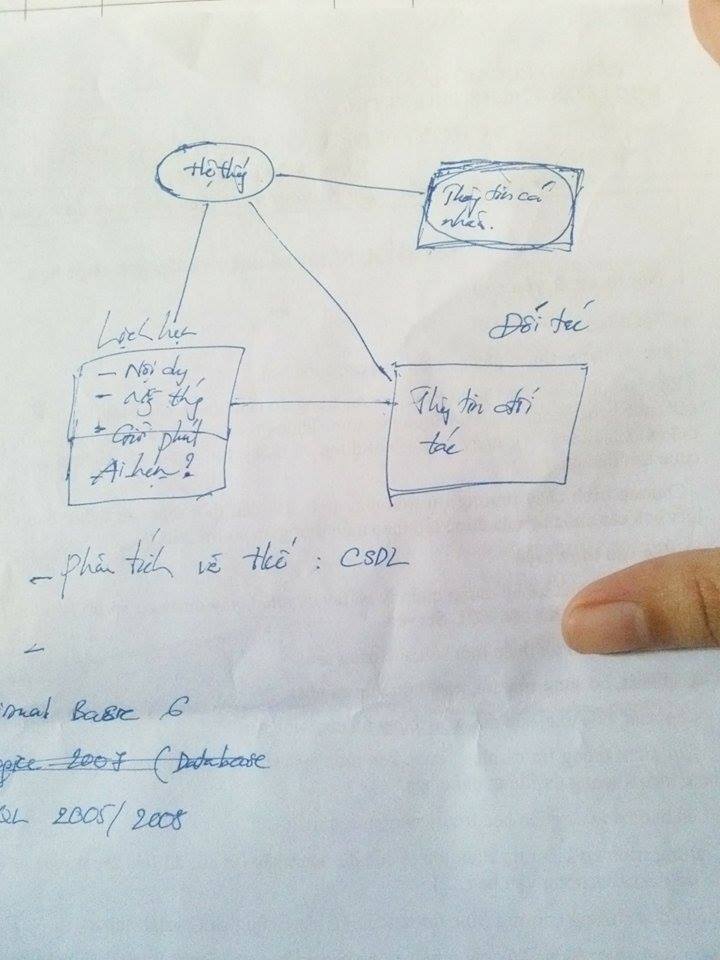 Hệ thống
Thông tin cá
nhân.
Lịch hẹn
Đối tác
- Nội dg
- ng thg
- Giờ phút
Ai hẹn?
Thông tin đối
tác
- phân tích về thế : CSDL
-
isual Basic 6
ffice 2007 (Database
SQL 2005/2008